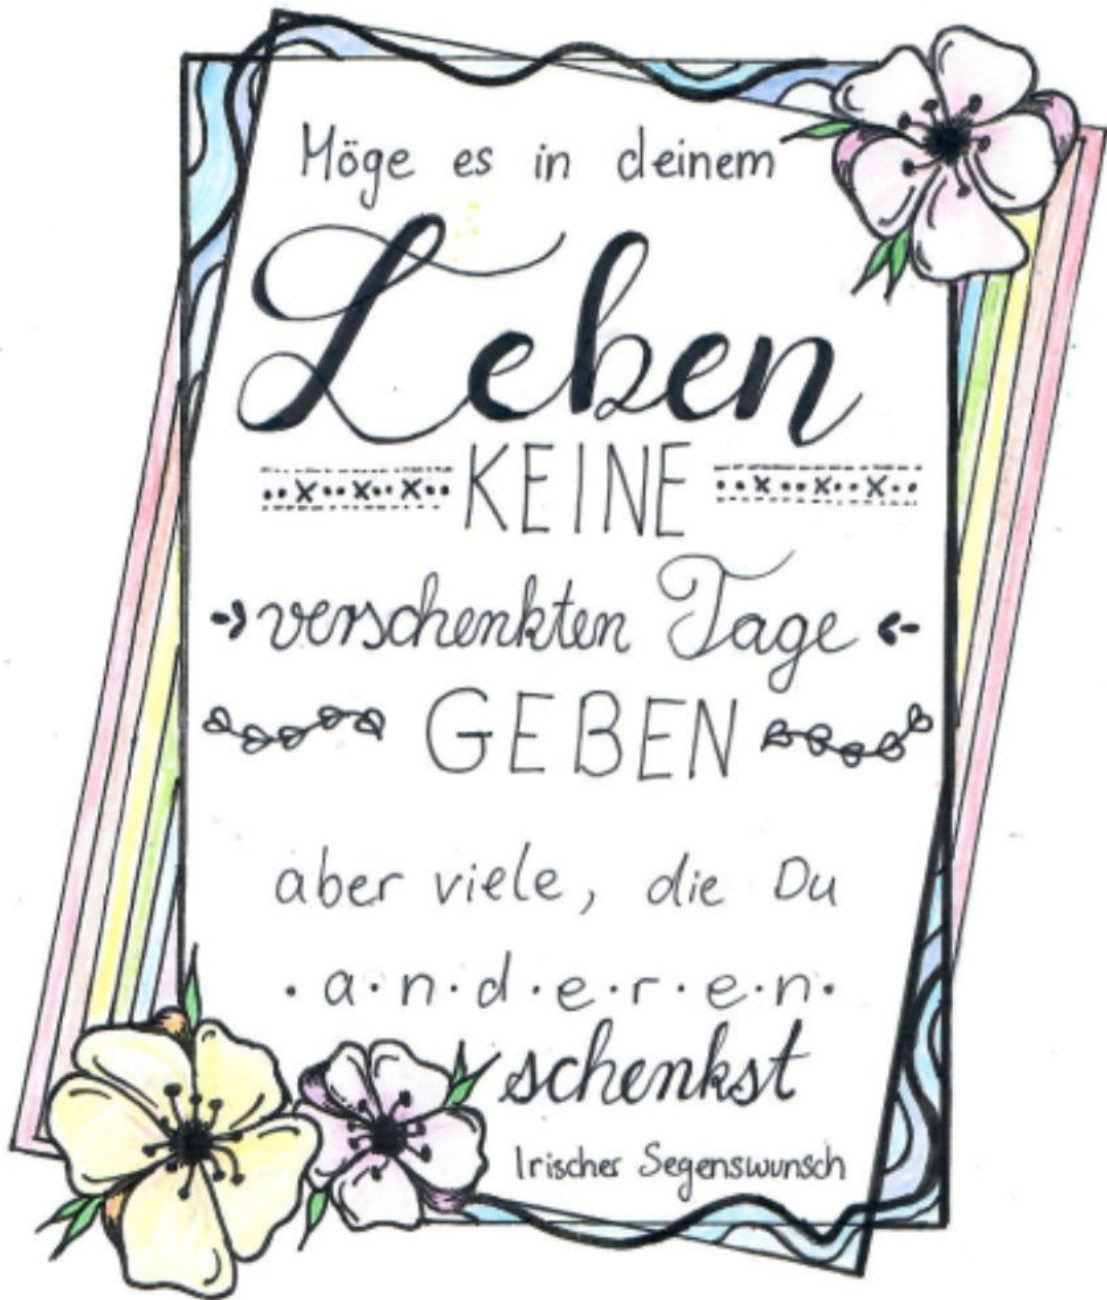 Möge es in deinem
Leben
KEINE
verschenkten Tage
GEBEN
aber viele, die Du
a·n·d·e·r·e·n
schenkst
Irischer Segenswunsch